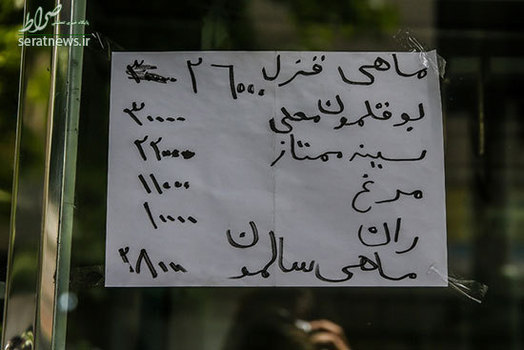 صراط
seratnews.ir
ماهی قزل ۲۶۰۰۰
بوقلمون معلی ۳۰۰۰۰
سینه ممتاز ۲۲۰۰۰
مرغ ۱۱۰۰۰
ران ۱۰۰۰۰
ماهی سالمون ۲۸۰۰۰